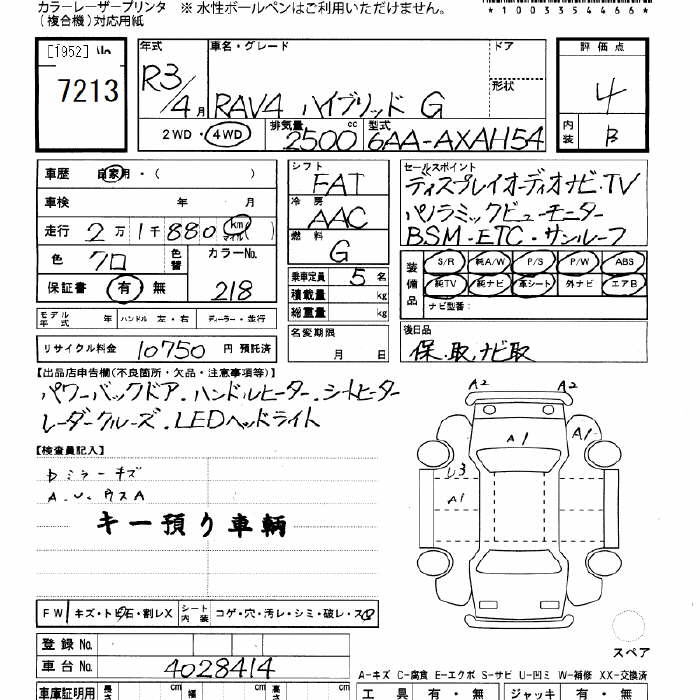 カラーレーザープリンタ ※ 水性ボールペンはご利用いただけません。
(複合機)対応用紙
*1003354466*
[1952]
7213
年式
R3/4月
車名・グレード
RAV4 ハイブリッド G
ドア
形状
2WD・4WD
排気量 2500 cc
型式 6AA-AXAH54
評価点
4
内装 B
車歴 自家用・( )
車検 年 月
走行 2万1千880 km マイル
色 クロ
色替
カラーNo. 218
保証書 有 無
モデル年式 年 ハンドル 左・右 ディーラー・並行
リサイクル料金 10750 円 預託済
シフト FAT
冷房 AAC
燃料 G
乗車定員 5 名
積載量 kg
総重量 kg
名変期限
月 日
セールスポイント
ディスプレイオーディオナビ・TV
パノラミックビューモニター
BSM・ETC・サンルーフ
装備品
S/R 純A/W P/S P/W ABS
純TV 純ナビ 革シート 外ナビ エアB
ナビ型番:
後日品
保・取、ナビ取
【出品店申告欄(不良箇所・欠品・注意事項等)】
パワーバックドア・ハンドルヒーター・シートヒーター
レーダークルーズ・LEDヘッドライト
【検査員記入】
ミラーキズ
A.U.ウスA
キー預り車輌
A2 A2
A1 A1
A1
FW キズ・ト石・割レX
シート内装 コゲ・穴・汚レ・シミ・破レ・スレ
登録 No.
車台 No. 4028414
スペア
A-キズ C-腐食 E-エクボ S-サビ U-凹ミ W-補修 XX-交換済
車庫証明用 長さ cm 幅 cm 高さ cm
工具 有・無 ジャッキ 有・無